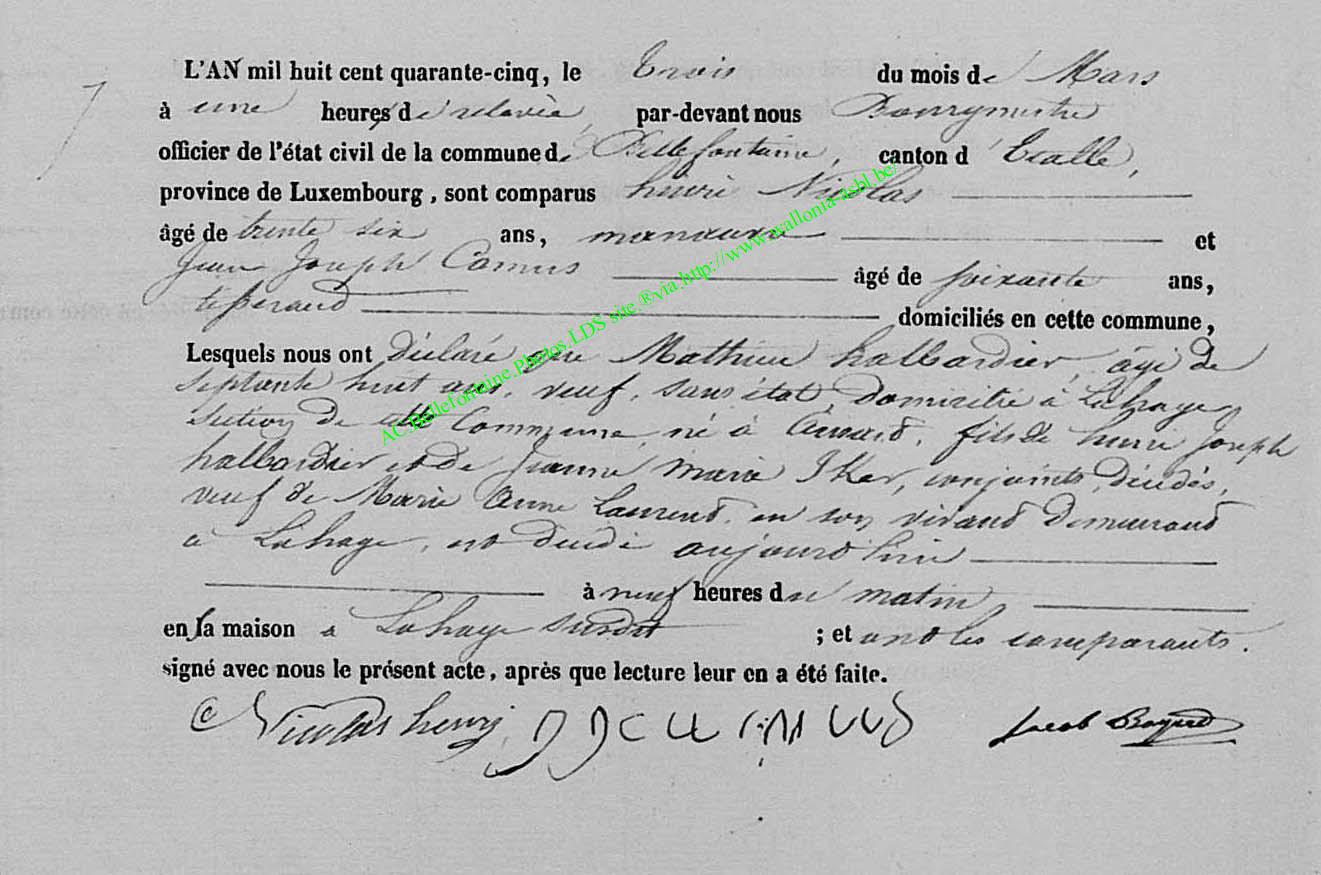 L'AN mil huit cent quarante-cinq, le trois du mois de Mars
à une heures de relevée, par-devant nous Bourgmestre
officier de l'état civil de la commune de Bellefontaine, canton d'Etalle,
province de Luxembourg, sont comparus henri Nicolas
âgé de trente six ans, manœuvre et
Jean Joseph Camus âgé de soixante ans,
tisserand domiciliés en cette commune,
Lesquels nous ont déclaré que Mathieu halbardier, âgé de
septante huit ans, veuf, sans état, domicilié à Lahage,
section de cette Commune, né à, fils de henri Joseph
halbardier et de Jeanne Marie, conjoints, décédés,
veuf de Marie Anne Laurent, en son vivant demeurant
à Lahage, est décédé aujourd'hui
à neuf heures du matin,
en sa maison à Lahage susdit; et ont les comparants
signé avec nous le présent acte, après que lecture leur en a été faite.
Nicolas henri JJ CAMUS Jacob
AC.Bellefontaine.Photos.LDS site ®via http://www.wallonia-asbl.be/